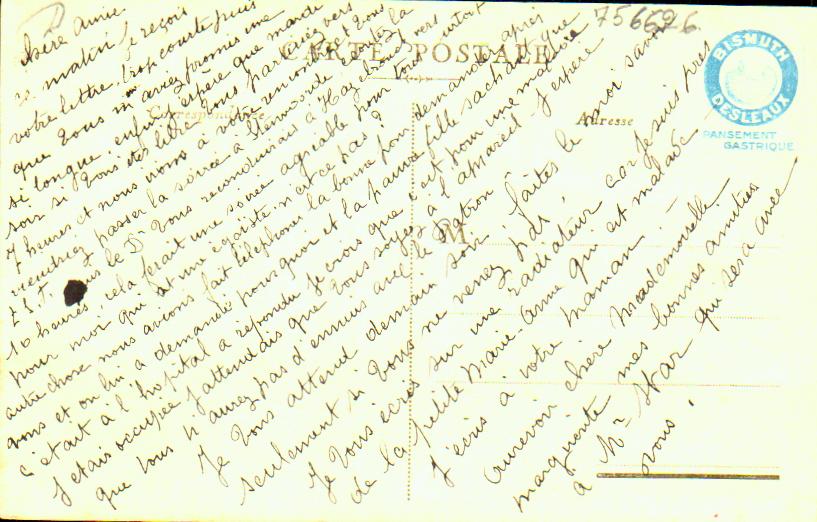 756626
CARTE POSTALE
Correspondance
Adresse
M
BISMUTH
DESLEAUX
PANSEMENT
GASTRIQUE
chère amie
ce matin je reçois
votre lettre trop courte puis
que vous m'aviez promis une
si longue, enfin j'espère que mardi
soir si vous êtes libre vous partirez vers
7 heures et nous irons à votre rencontre et vous
viendriez passer la soirée à
T.S.F. puis le Dr vous reconduirais à Hazebrouck vers
10 heures, cela ferait une soirée agréable pour tous surtout
pour moi qui est une égoïste n'est ce pas ?
autre chose nous avions fait téléphoner la bonne pour demander après
vous et on lui a demandé pourquoi et la pauvre fille sachant que
c'était à l'hopital a répondu je crois que c'est pour une malade
J'étais occupée j'attendais que vous soyez à l'appareil J'espère
que vous n'aurez pas d'ennuis avec le patron
Je vous attend demain soir, faites le moi savoir
seulement si vous ne venez pas,
Je vous écris sur une radiateur car je suis près
de la petite Marie-Anne qui est malade
J'écris à votre maman. -
aurevoir chère mademoiselle
marguerite mes bonnes amitiés
à Mr War qui sera avec
vous.